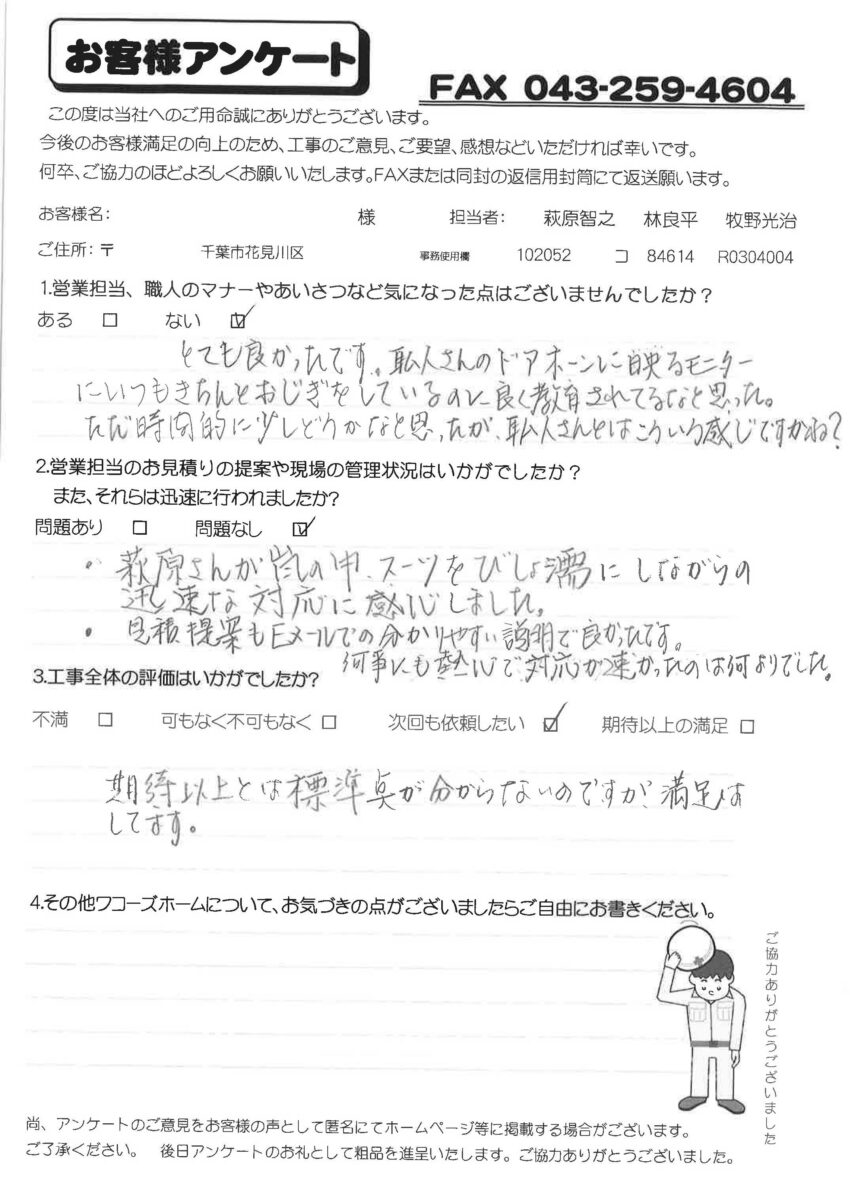 お客様アンケート
FAX 043-259-4604
この度は当社へのご用命誠にありがとうございます。
今後のお客様満足の向上のため、工事のご意見、ご要望、感想などいただければ幸いです。
何卒、ご協力のほどよろしくお願いいたします。FAXまたは同封の返信用封筒にて返送願います。
お客様名： 様 担当者： 萩原智之 林良平 牧野光治
ご住所：〒 千葉市花見川区 事務使用欄 102052 コ 84614 R0304004
1.営業担当、職人のマナーやあいさつなど気になった点はございませんでしたか？
ある □ ない ☑
とても良かったです。職人さんのドアホーンに映るモニター
にいつもきちんとおじぎをしているのに良く教育されてるなと思った。
ただ時間的に少しどうかなと思ったが、職人さんとはこういう感じですかね？
2.営業担当のお見積りの提案や現場の管理状況はいかがでしたか？
また、それらは迅速に行われましたか？
問題あり □ 問題なし ☑
・萩原さんが嵐の中、スーツをびしょ濡にしながらの
迅速な対応に感心しました。
・見積提案もEメールでの分かりやすい説明で良かったです。
何事にも熱心で対応が速かったのは何よりでした。
3.工事全体の評価はいかがでしたか？
不満 □ 可もなく不可もなく □ 次回も依頼したい ☑ 期待以上の満足 □
期待以上とは標準点が分からないのですが、満足は
してます。
4.その他ワコーズホームについて、お気づきの点がございましたらご自由にお書きください。
ご協力ありがとうございました
尚、アンケートのご意見をお客様の声として匿名にてホームページ等に掲載する場合がございます。
ご了承ください。 後日アンケートのお礼として粗品を進呈いたします。ご協力ありがとうございました。